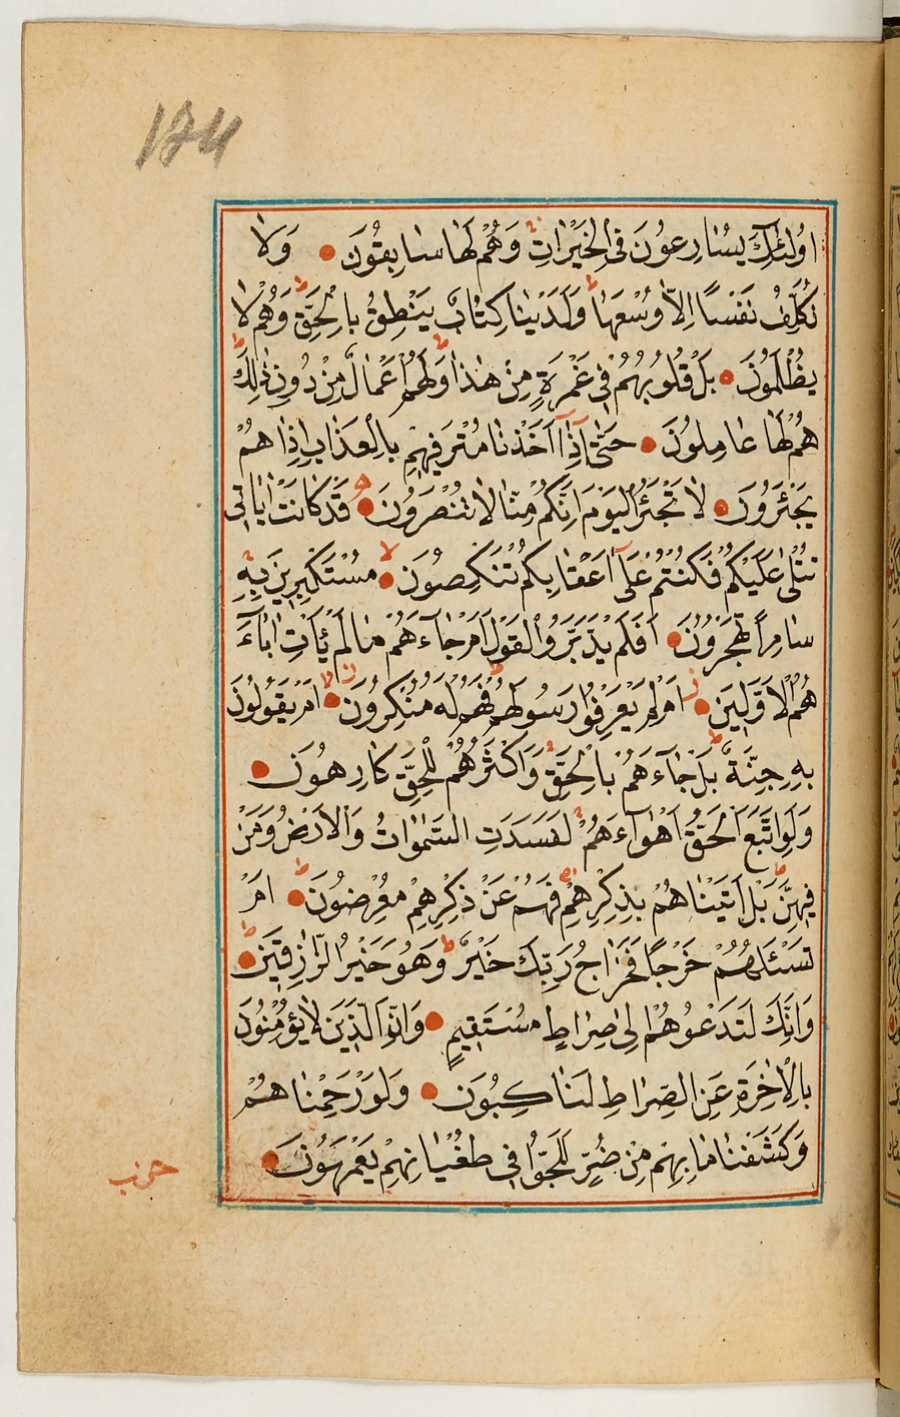 174
اُولٰئِكَ يُسَارِعُونَ فِى الْخَيْرَاتِ وَهُمْ لَهَا سَابِقُونَ وَلَا
نُكَلِّفُ نَفْسًا اِلَّا وُسْعَهَا ط وَلَدَيْنَا كِتَابٌ يَنْطِقُ بِالْحَقِّ ط وَهُمْ لَا
يُظْلَمُونَ بَلْ قُلُوبُهُمْ فِى غَمْرَةٍ مِنْ هٰذَا ط وَلَهُمْ اَعْمَالٌ مِنْ دُونِ ذٰلِكَ ط
هُمْ لَهَا عَامِلُونَ حَتّٰى اِذَا اَخَذْنَا مُتْرَفِيهِمْ بِالْعَذَابِ اِذَا هُمْ
يَجْئَرُونَ لَا تَجْئَرُ الْيَوْمَ اِنَّكُمْ مِنَّا لَا تُنْصَرُونَ قَدْ كَانَتْ اٰيَاتِى
تُتْلٰى عَلَيْكُمْ فَكُنْتُمْ عَلٰٓى اَعْقَابِكُمْ تَنْكِصُونَ لا مُسْتَكْبِرِينَ بِهِ
سَامِرًا تَهْجُرُونَ اَفَلَمْ يَدَّبَّرُو الْقَوْلَ اَمْ جَآءَهُمْ مَا لَمْ يَأْتِ اٰبَآءَ
هُمُ الْاَوَّلِينَ ز اَمْ لَمْ يَعْرِفُوا رَسُولَهُمْ فَهُمْ لَهُ مُنْكِرُونَ اَمْ يَقُولُونَ
بِهِ جِنَّةٌ ط بَلْ جَآءَهُمْ بِالْحَقِّ وَاَكْثَرُهُمْ لِلْحَقِّ كَارِهُونَ
وَلَوِ اتَّبَعَ الْحَقُّ اَهْوَآءَهُمْ لَفَسَدَتِ السَّمٰوَاتُ وَالْاَرْضُ وَمَنْ
فِيهِنَّ ط بَلْ اَتَيْنَاهُمْ بِذِكْرِهِمْ فَهُمْ عَنْ ذِكْرِهِمْ مُعْرِضُونَ ط اَمْ
تَسْئَلُهُمْ خَرْجًا فَخَرَاجُ رَبِّكَ خَيْرٌ ط وَهُوَ خَيْرُ الرَّازِقِينَ ط
وَاِنَّكَ لَتَدْعُوهُمْ اِلٰى صِرَاطٍ مُسْتَقِيمٍ وَاِنَّ الَّذِينَ لَا يُؤْمِنُونَ
بِالْاٰخِرَةِ عَنِ الصِّرَاطِ لَنَاكِبُونَ وَلَوْ رَحِمْنَاهُمْ
وَكَشَفْنَا مَا بِهِمْ مِنْ ضُرٍّ لَلَجُّوا فِى طُغْيَانِهِمْ يَعْمَهُونَ
حزب